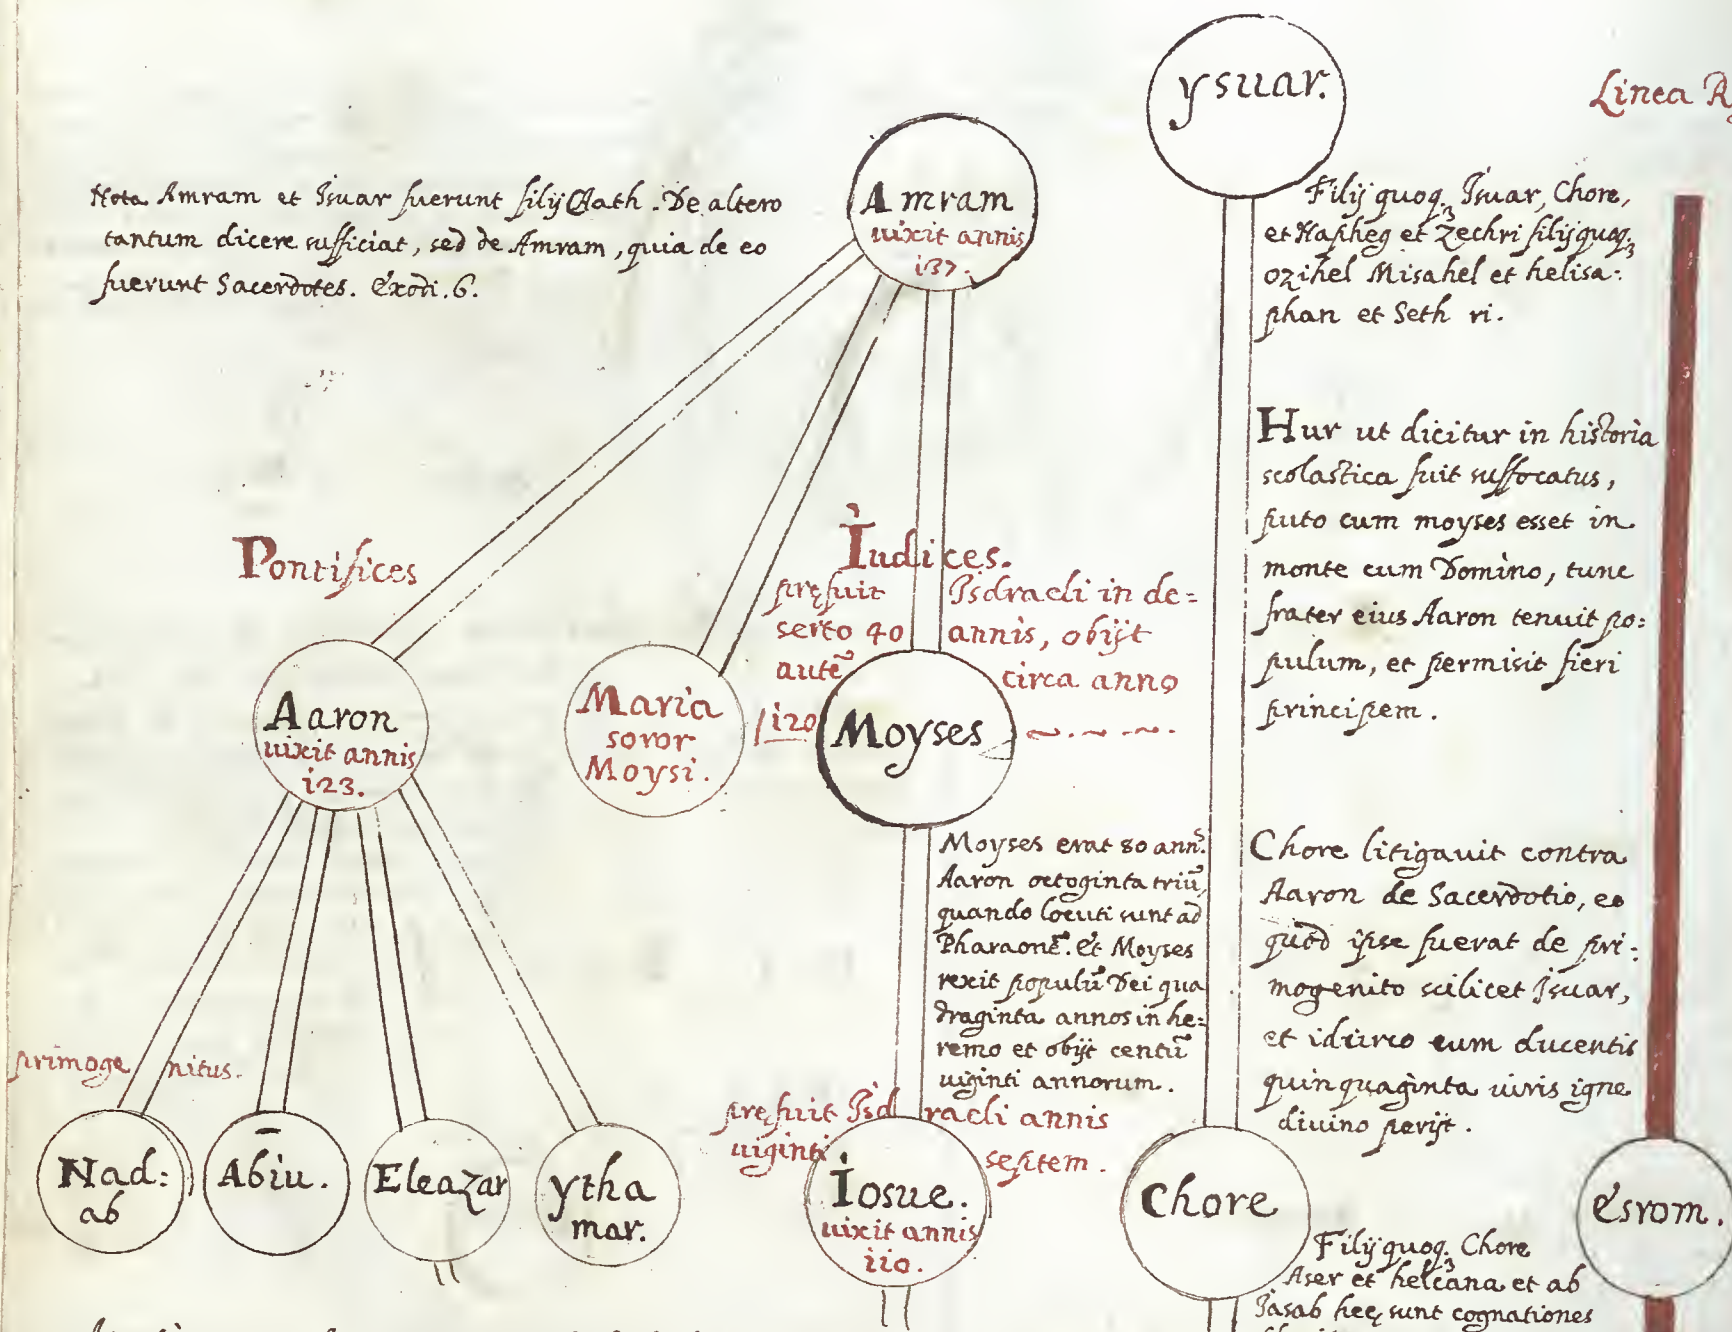 ysuar.
Linea
Amram
uixit annis
i37.
Nota Amram et Isuar fuerunt filij Caath. De altero
tantum dicere sufficiat, sed de Amram, quia de eo
fuerunt Sacerdotes. Exodi. 6.
Filij quoq3 Isuar, Chore,
et Napheg et Zechri filij quoq3
ozihel Misahel et helisa:
phan et Seth ri.
Hur ut dicitur in historia
scolastica fuit suffocatus,
puto cum moyses esset in
monte cum Domino, tunc
frater eius Aaron tenuit po:
pulum, et permisit fieri
principem.
Pontifices
Iudices.
pręfuit Isdraeli in de=
serto 40 annis, obijt
autē circa anno
i20
Aaron
uixit annis
i23.
Maria
soror
Moysi.
Moyses
Moyses erat 80 anns.
Aaron octoginta triū,
quando locuti sunt ad
Pharaonē. Et Moyses
rexit populū Dei qua
draginta annos in he:
remo et obijt centū
uiginti annorum.
Chore litigauit contra
Aaron de Sacerdotio, eo
quod ipse fuerat de pri:
mogenito scilicet Isuar,
et idcirco cum ducentis
quinquaginta uiris igne
diuino perijt.
primoge nitus.
pręfuit Isd raeli annis
uiginti septem.
Nad:
ab
Abiu.
Eleazar
ytha
mar.
Iosue.
uixit annis
iio.
Chore
Esrom.
Filij quoq3 Chore
Aser et helcana et ab
Iasab heę sunt cognationes